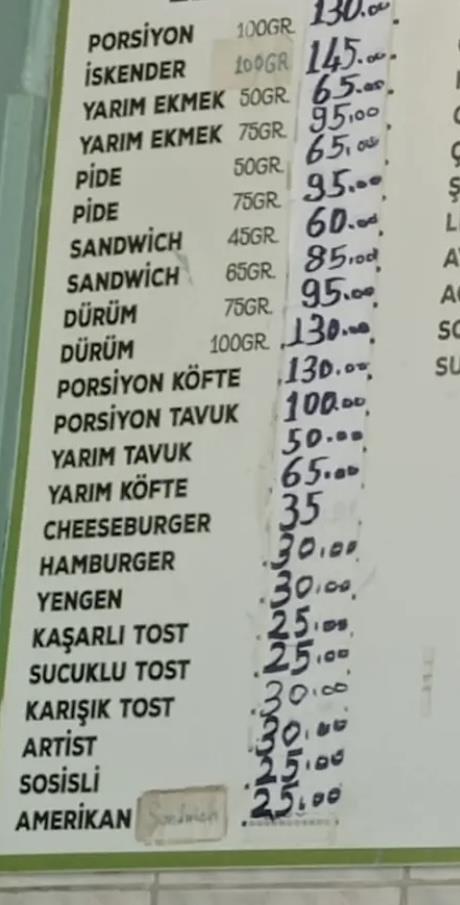 PORSİYON 100GR. 130.00
İSKENDER 100GR 145.00
YARIM EKMEK 50GR. 65.00
YARIM EKMEK 75GR. 95,00
PİDE 50GR. 65,00
PİDE 75GR. 95.00
SANDWİCH 45GR. 60.00
SANDWİCH 65GR. 85.00
DÜRÜM 75GR. 95.00
DÜRÜM 100GR. 130.00
PORSİYON KÖFTE 130.00
PORSİYON TAVUK 100.00
YARIM TAVUK 50.00
YARIM KÖFTE 65.00
CHEESEBURGER 35
HAMBURGER 30.00
YENGEN 30.00
KAŞARLI TOST 25.00
SUCUKLU TOST 25.00
KARIŞIK TOST 30.00
ARTİST 30.00
SOSİSLİ 25.00
AMERİKAN Sandwich 25.00